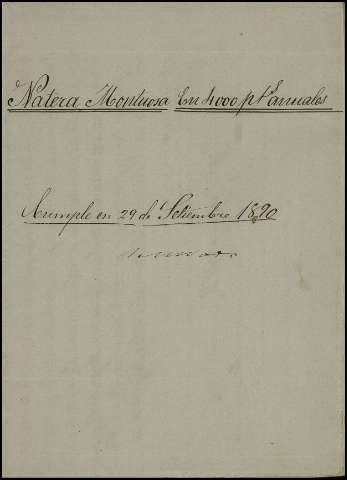 Natera Montuosa En 4000 pts anuales
Cumple en 29 de Setiembre 1890